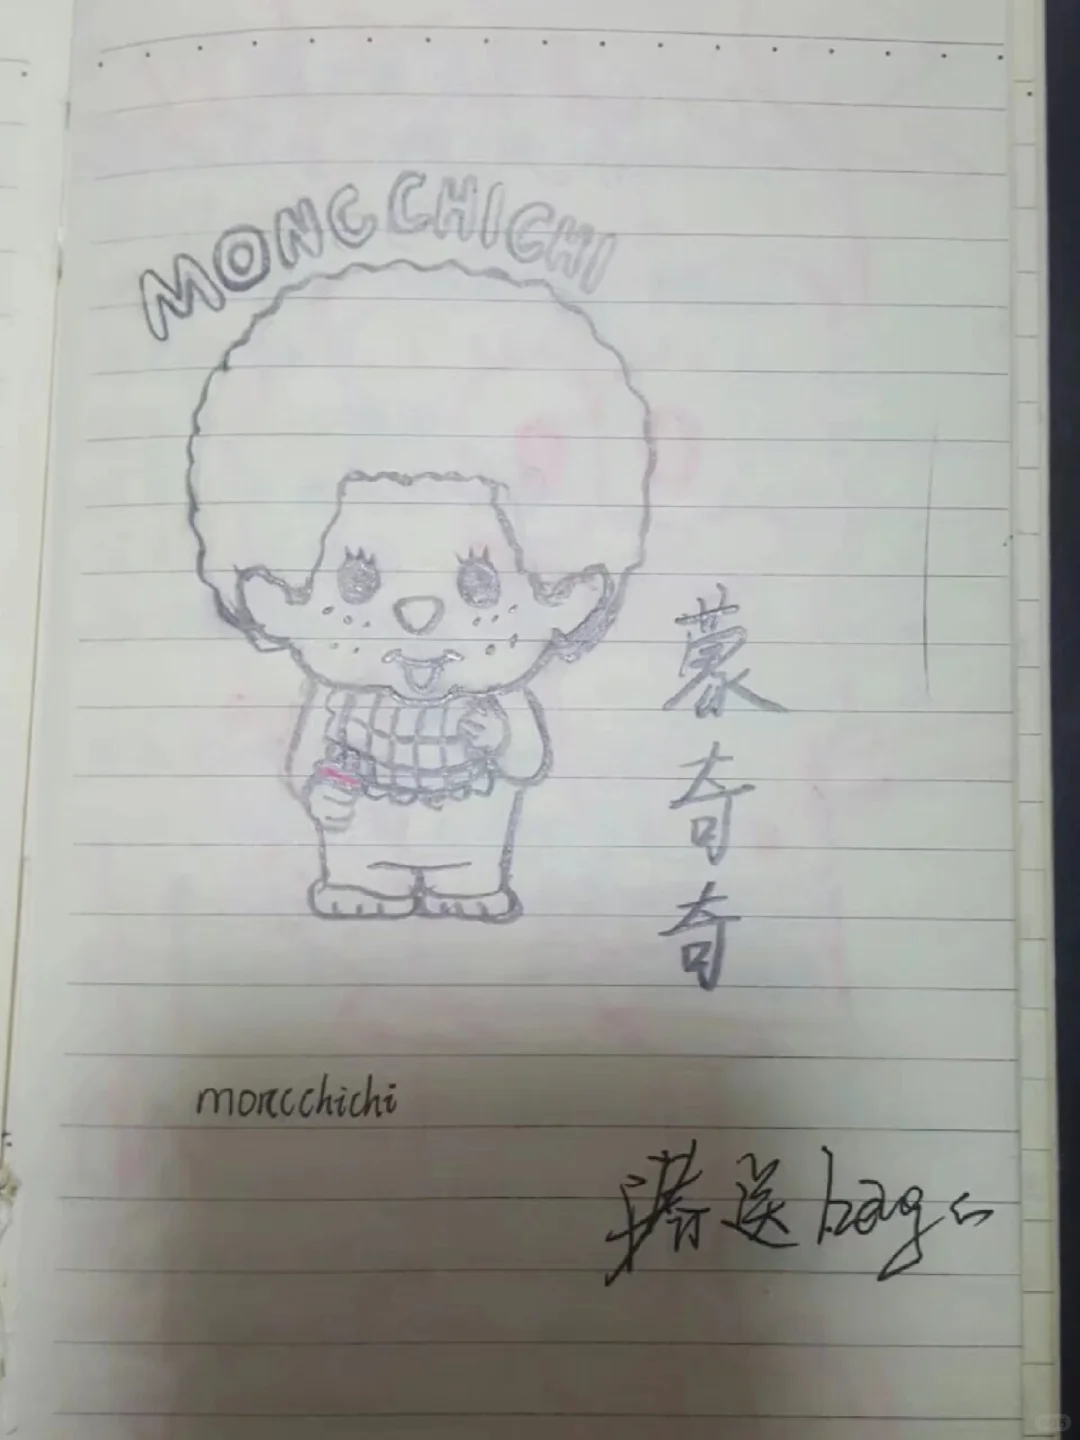 MONCCHICHI
蒙奇奇
moncchichi
送 bag